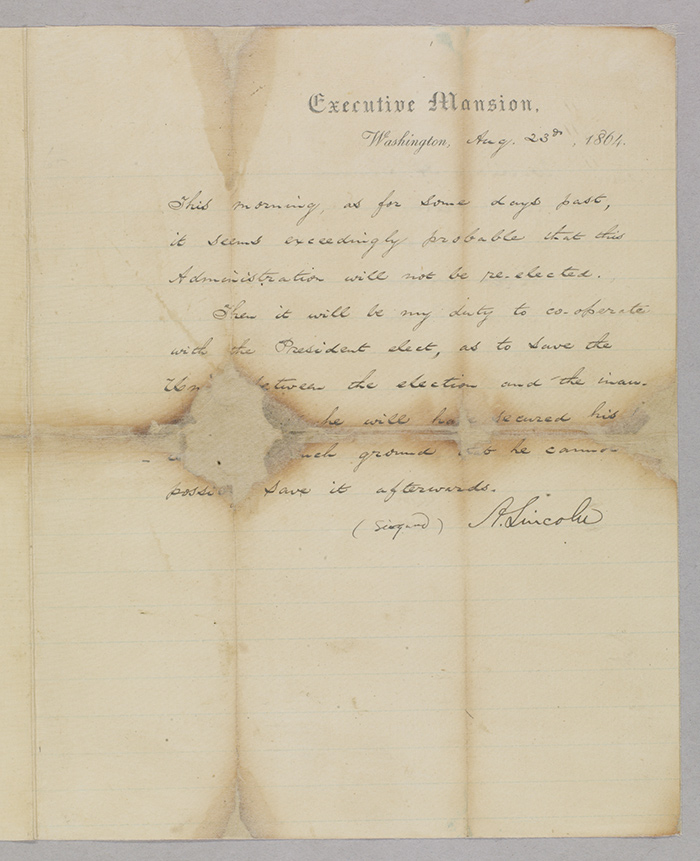 Executive Mansion,
Washington, Aug. 23d, 1864.
This morning, as for some days past,
it seems exceedingly probable that this
Administration will not be re-elected.
Then it will be my duty to co-operate
with the President elect, as to save the
Un between the election and the inau-
he will ha secured his
such ground he cannot
possi save it afterwards.
(Signed) A. Lincoln